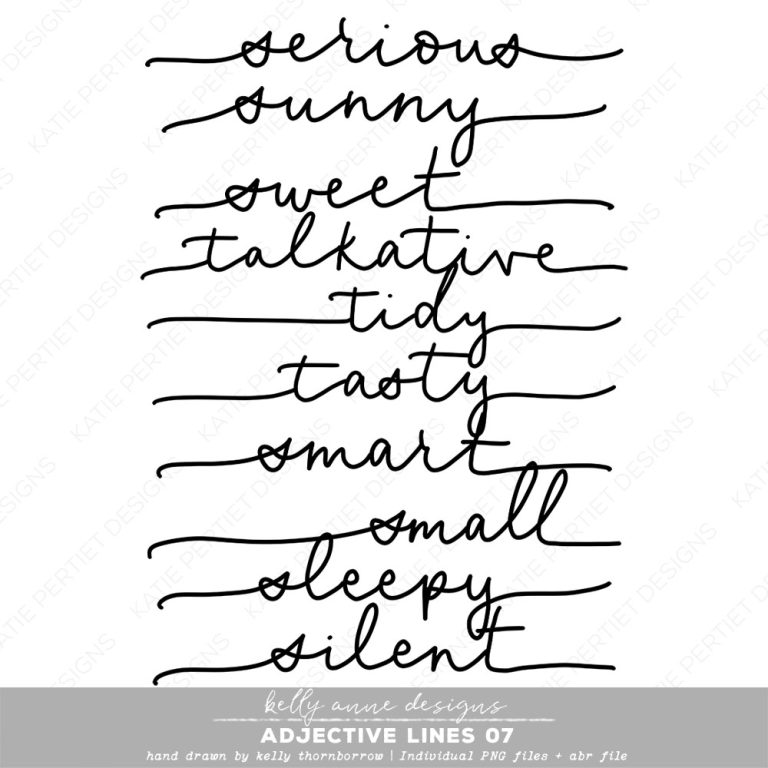 serious
sunny
sweet
talkative
tidy
tasty
smart
small
sleepy
silent
kelly anne designs
ADJECTIVE LINES 07
hand drawn by kelly thornborrow | Individual PNG files + abr file
KATIE PERTIET DESIGNS